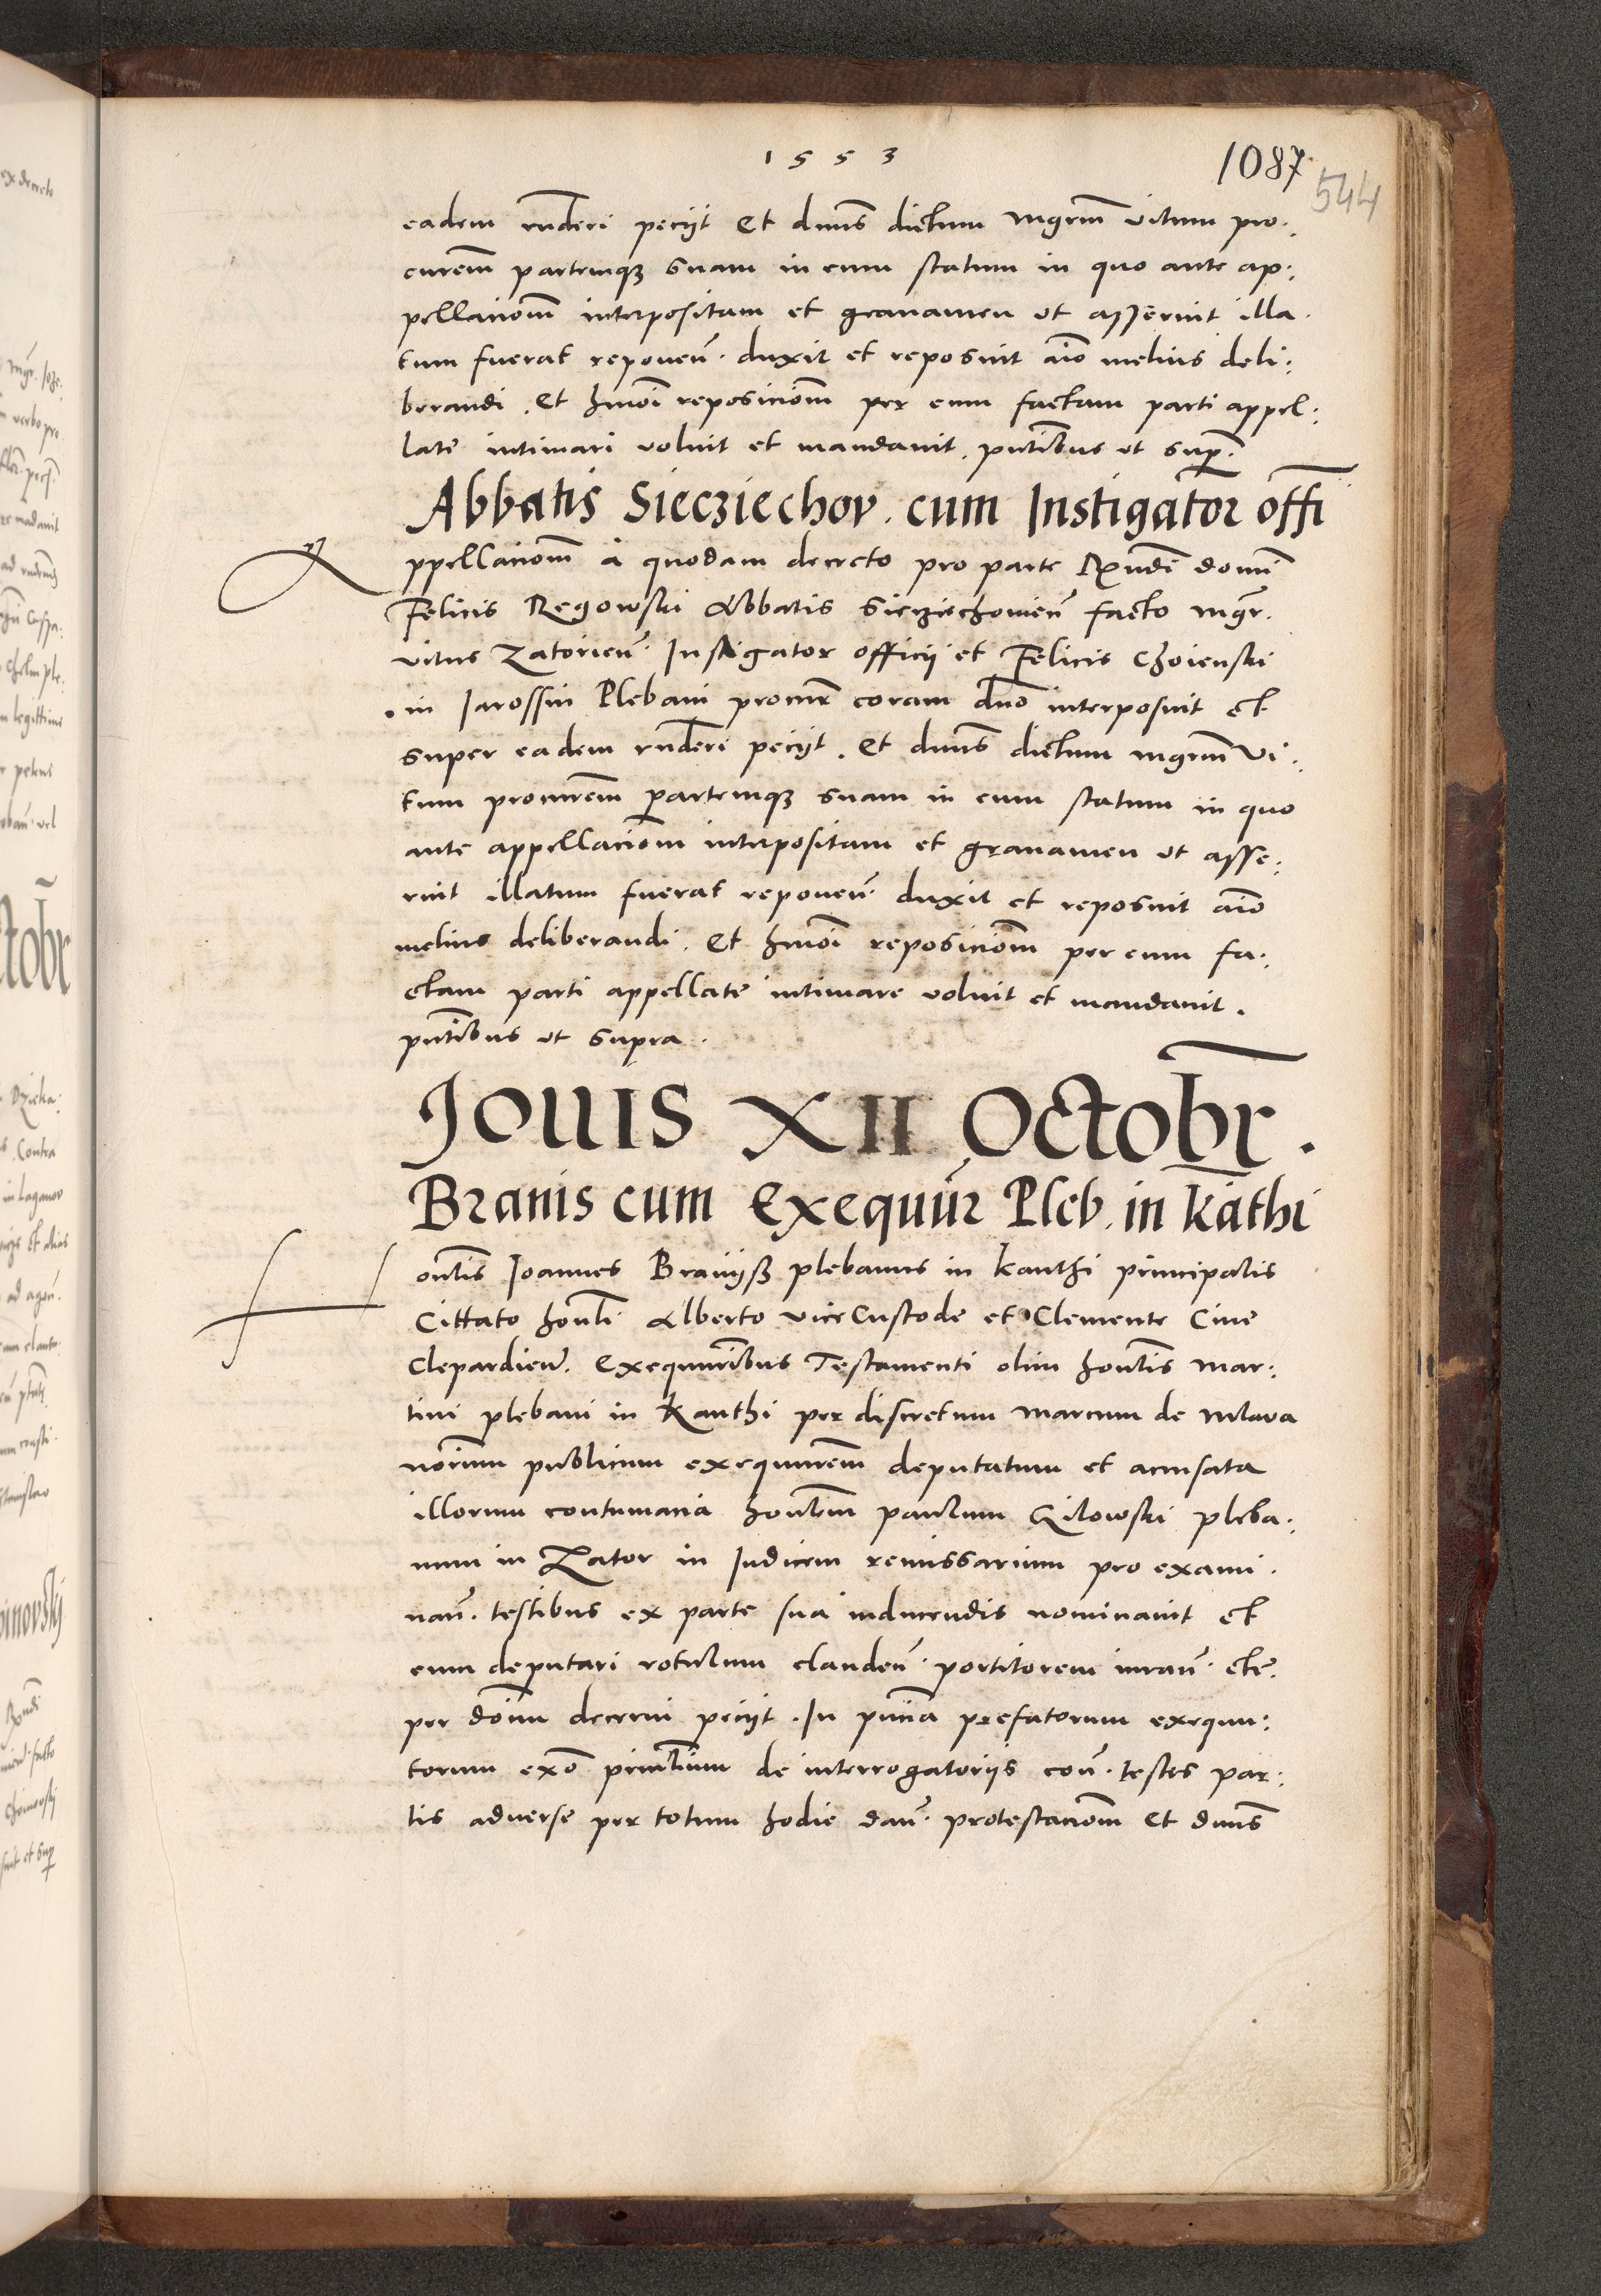 1553
1087
544
eadem rn̄deri peciit Et dn̄us dictum mgrm̄ Vitum pro:
curem̄ partemq₃ suam in eum statum in quo ante ap:
pellaciom̄ interpositam et grauamen ut asseruit illa:
tum fuerat reponeñ. duxit et reposuit aīo melius deli:
berandi. Et hmōi reposiciom̄ per eum factam parti appel:
late intimari voluit et mandauit. pn̄tibus ut supr̄.
Abbatis Siecziechov. cum Instigator̄ offi
Appellaciom̄ a quodam decreto pro parte Rx̄ndi domī
Felicis Regowski Abbatis Siecziechouieñ facto mgr̄.
Vitus Zatorieñ Instigator officii et Felicis Choienski
in Jarossin Plebani procur̄ coram dn̄o interposuit et
super eadem rn̄deri peciit. Et dn̄us dictum mgrm̄ Vi:
tum procurem̄ partemq₃ suam in eum statum in quo
ante appellaciom̄ interpositam et grauamen ut asse:
ruit illatum fuerat reponeñ. duxit et reposuit aīo
melius deliberandi. Et hmōi reposiciom̄ per eum fa:
ctam parti appellate intimare voluit et mandauit.
pn̄tibus ut supra.
Jouis XII Octobr̄.
Branis cum Exequūr Pleb. in Kāthi
Hon̄tis Joannes Braniiß plebanus in Kanthi principalis
Cittato hon̄li Alberto ViceCustode et Clemente Ciue
Clepardieñ. Exequūribus Testamenti olim hon̄tis Mar:
tini plebani in Kanthi per discretum Marcum de Mlava
norīum publicum exequurem̄ deputatum et accusata
illorum contumacia hon̄lem paulum Gilowski pleba:
num in Zator in Judicem remissarium pro exami:
nañ. testibus ex parte sua inducendis nominauit et
eum deputari rotulum claudeñ portitorem iurañ. etc̄.
per dōīum decerni peciit. In pn̄cia prefatorum exequu:
torum exō pn̄cliuum de interrogatoriis coñ. testes par:
tis aduerse per totum hodie dañ. protestaciom̄ Et dn̄us